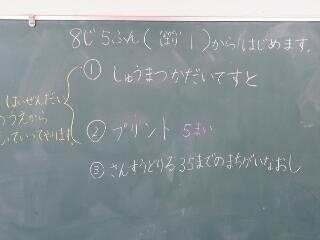 8じ5ふん( 1)からはじめます。
① しゅうまつかだいてすと
はいぜんだい
うえから
いていってやります。
② プリント 5まい
③ さんすうどりる35までのまちがいなおし